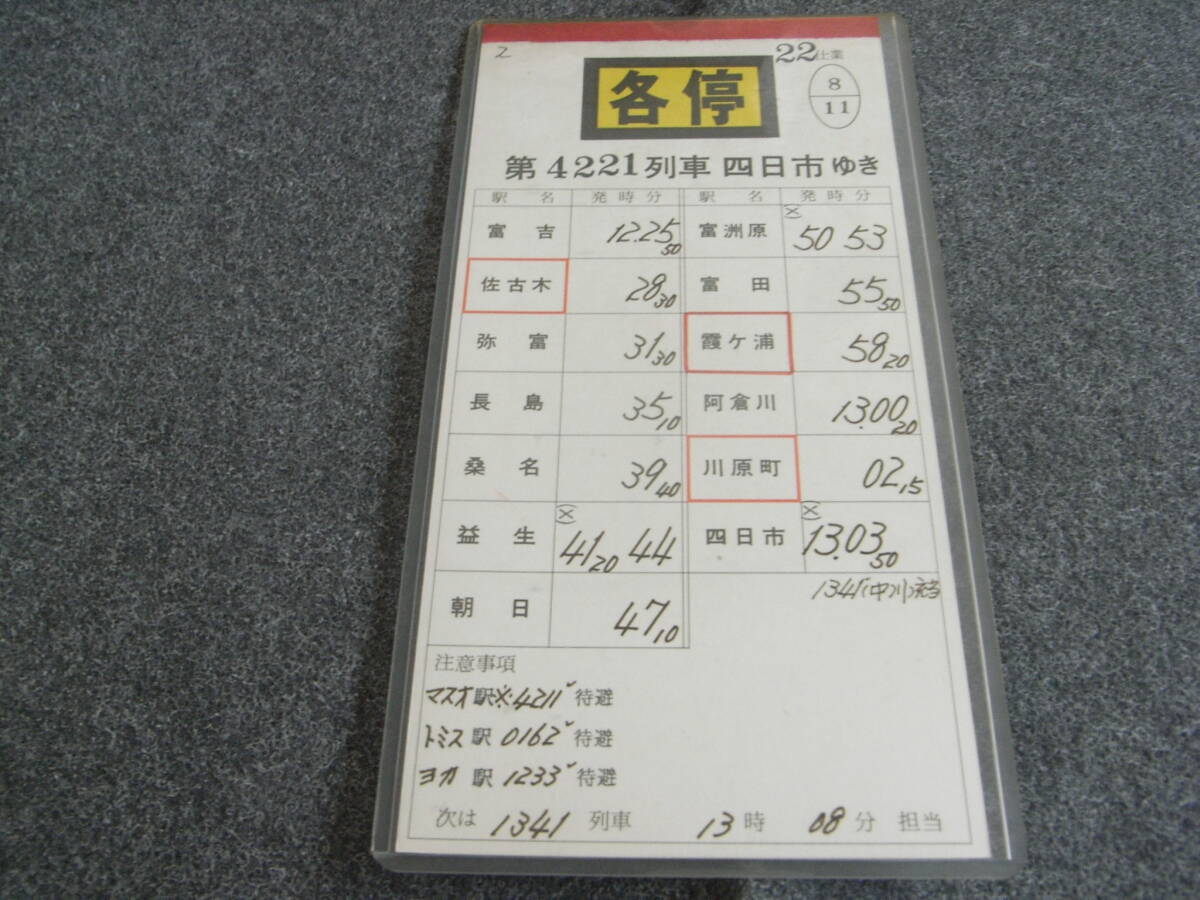 22仕業
各停
8
11
第4221列車 四日市ゆき
駅名 発時分 駅名 発時分
富吉 12.25 50 富洲原 (×) 50 53
佐古木 28 30 富田 55 50
弥富 31 30 霞ケ浦 58 20
長島 35 10 阿倉川 13.00 20
桑名 39 40 川原町 02 15
益生 (×) 41 20 44 四日市 (×) 13.03 50
朝日 47 10
注意事項
マスオ駅※4211レ待避
トミス駅 0162レ待避
ヨカ駅 1233レ待避
次は 1341 列車 13時 08分 担当